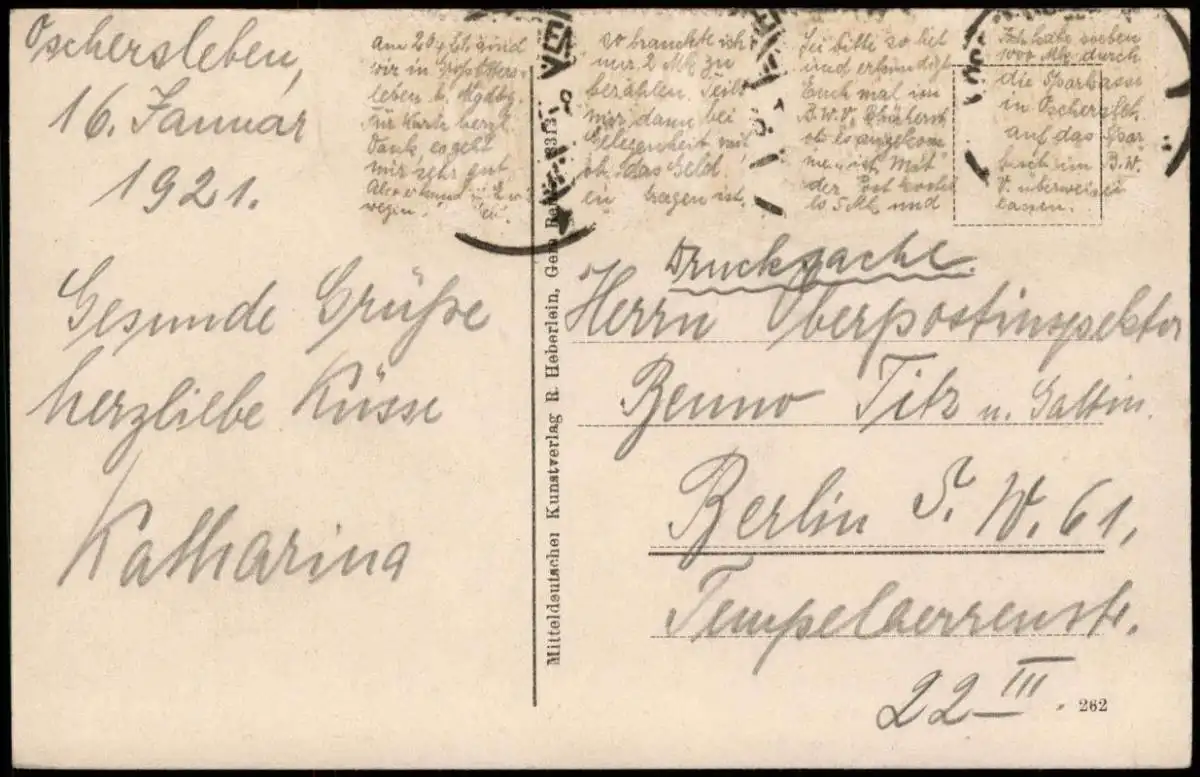 Oschersleben,
16. Januar
1921.
Gesunde Grüße
herzliebe Küsse
Katharina
am
wir in Groß Oschers-
leben b. Mgdbg.
für Karte herzl.
Dank, es geht
mir sehr gut.
wegen
so brauchte ich
nur 2 Mk zu
bezahlen. Teilt
mir dann bei
Gelegenheit mit
ob das Geld
ein tragen ist.
Sei bitte so
und erkundigt
Euch mal im
B.W.V.
ob es angekom
men ist. Mit
der Post kostet
es 5 Mk und
Ich habe soeben
1000 Mk durch
die Sparkasse
in Oschersleb.
auf das Spar
buch im B.W.
V. überweisen
lassen.
Drucksache.
Herrn Oberpostinspektor
Benno Titz u. Gattin.
Berlin S. W. 61,
Tempelherrenstr.
22 III.
262
Mitteldeutscher Kunstverlag R. Heberlein, Gera